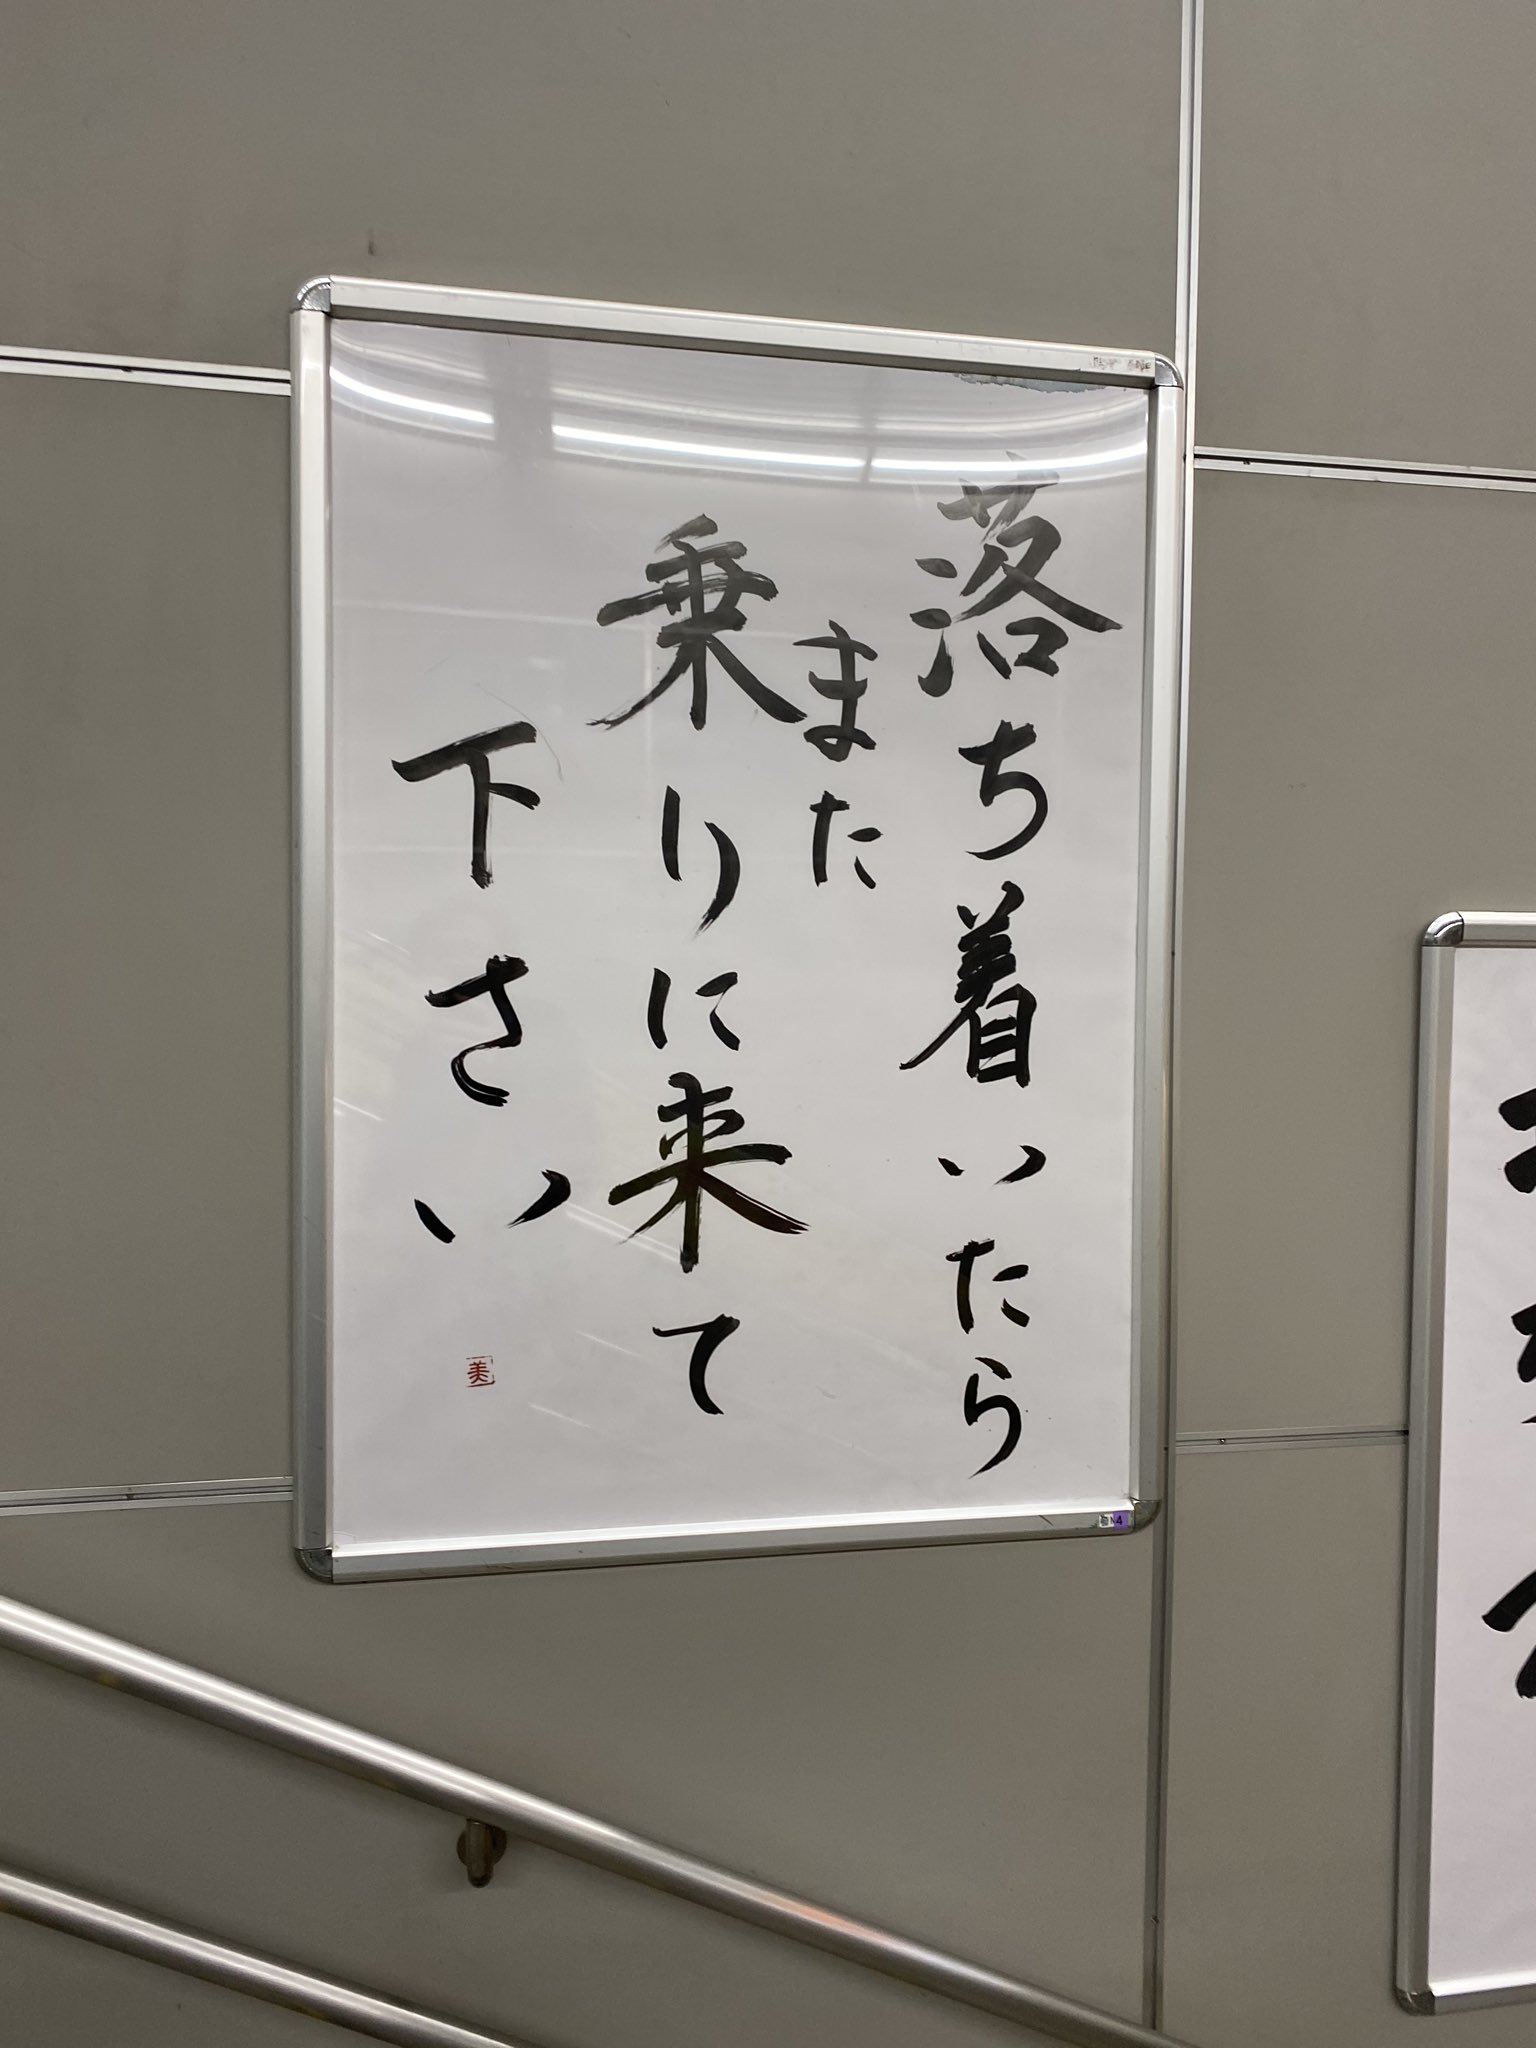 落ち着いたら
また
乗りに来て
下さい
美